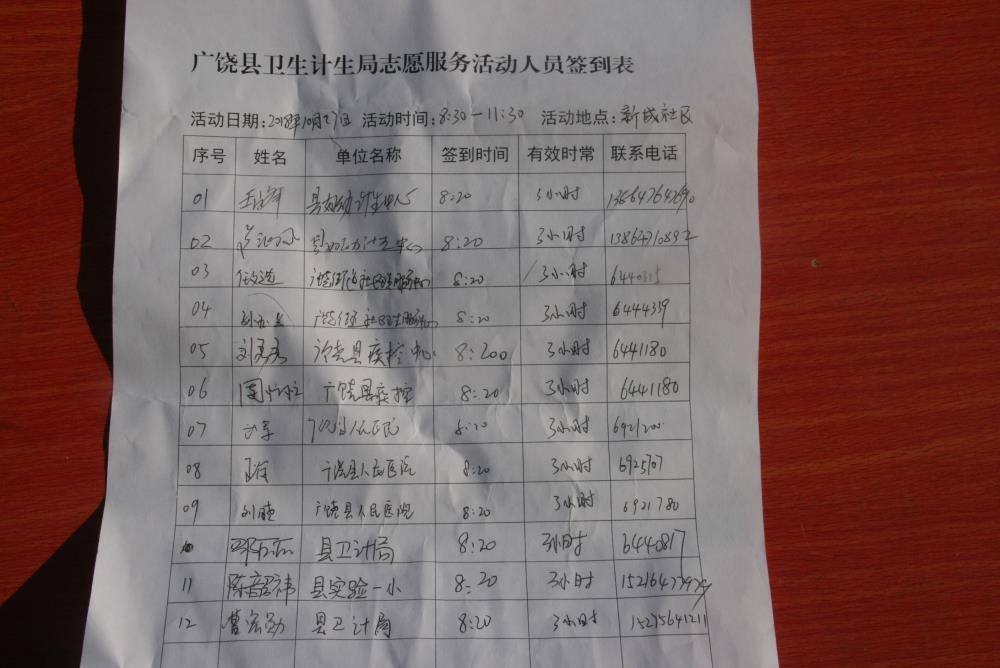 广饶县卫生计生局志愿服务活动人员签到表
活动日期:2018年10月27日 活动时间:8:30-11:30 活动地点:新成社区
序号 姓名 单位名称 签到时间 有效时常 联系电话
01 县妇幼计生中心 8:20 3小时
02 县妇幼计生中心 8:20 3小时
03 广饶街道社区卫生服务中心 8:20 3小时 6440315
04 广饶街道社区卫生服务中心 8:20 3小时 6444339
05 广饶县疾控中心 8:200 3小时 6441180
06 广饶县疾控 8:20 3小时 6441180
07 8:20 3小时
08 广饶县人民医院 8:20 3小时
09 刘 广饶县人民医院 8:20 3小时 6921780
10 县卫计局 8:20 3小时 6440817
11 陈韶祎 县实验一小 8:20 3小时
12 曹宏勋 县卫计局 8:20 3小时 15275641211